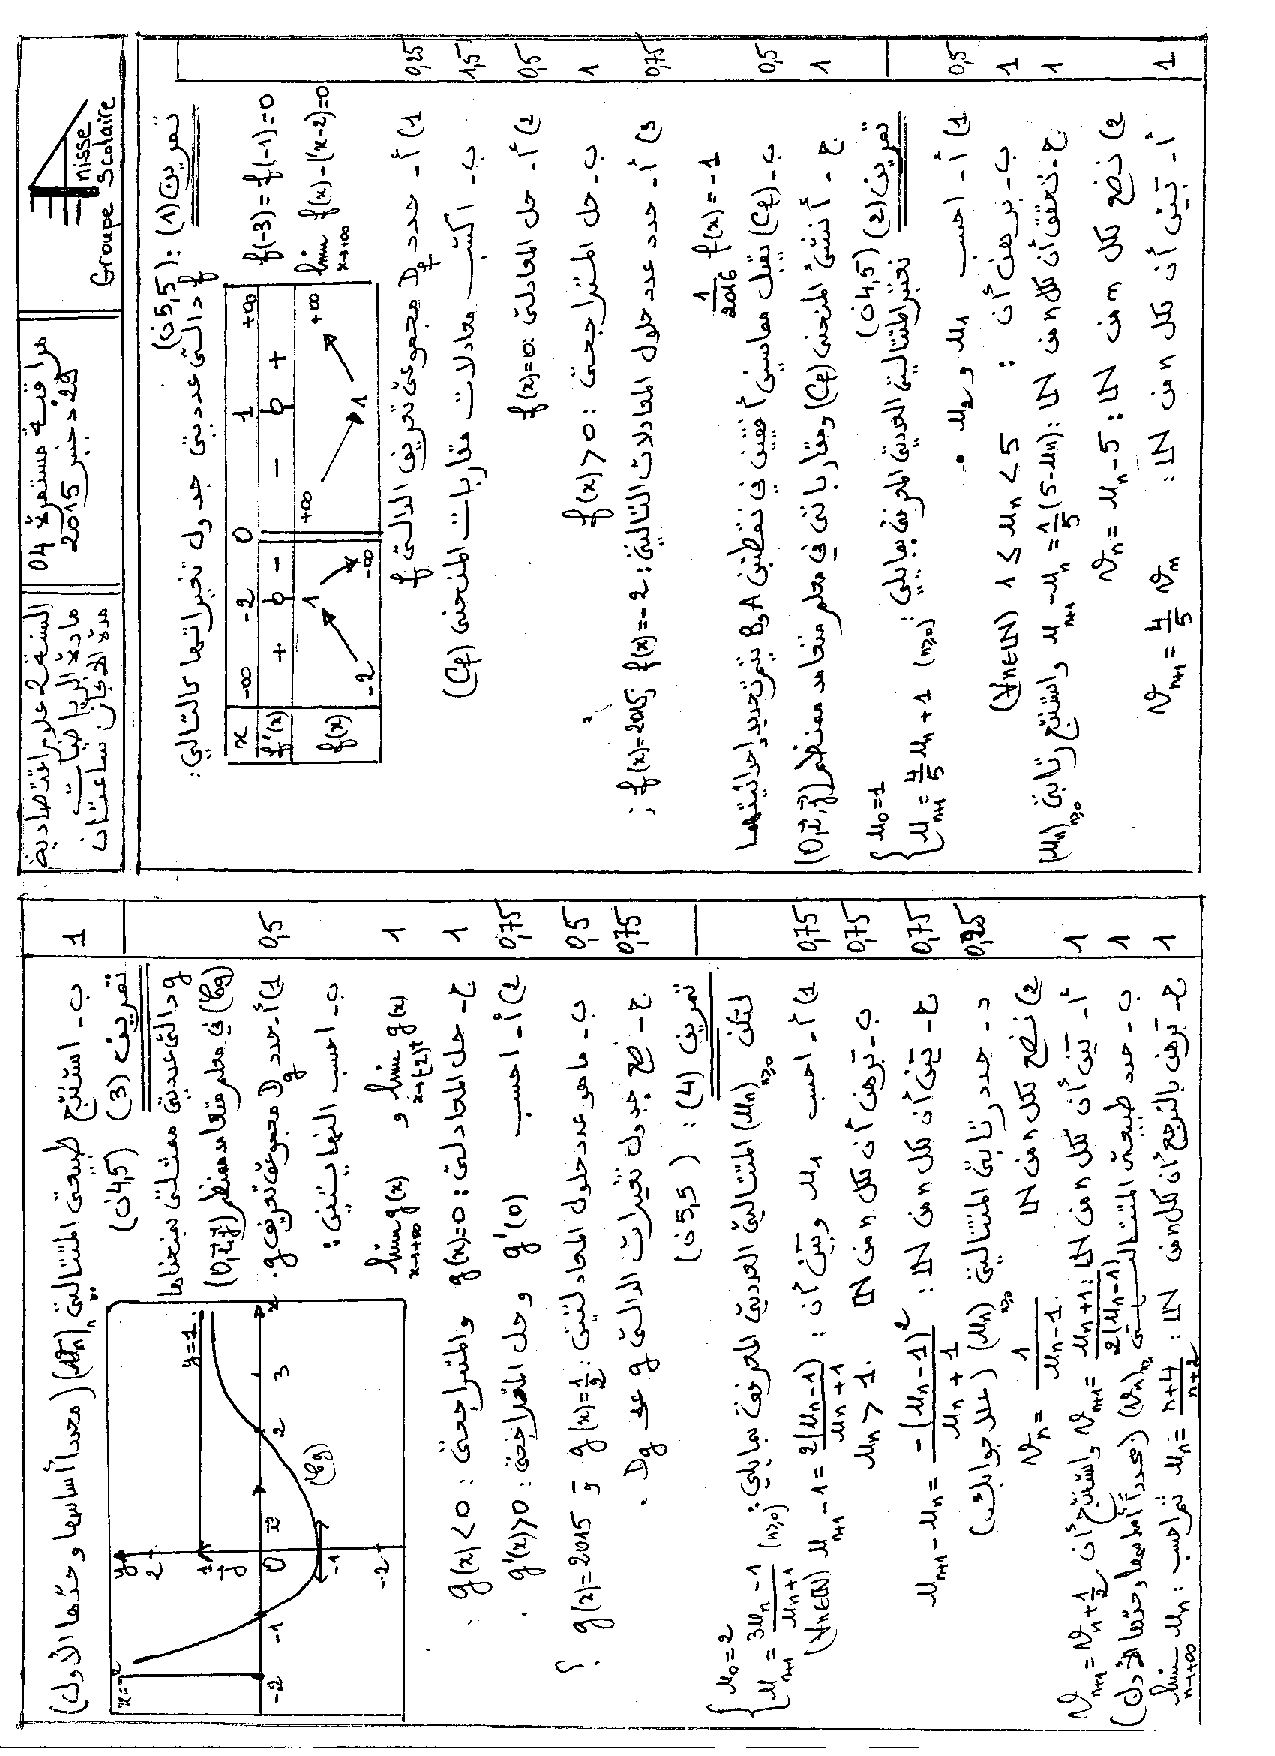 السنة 2 علوم اقتصادية
مادة الرياضيات
مدة الإنجاز ساعتان
مراقبة مستمرة 04
29 دجنبر 2015
Anisse
Groupe Scolaire
تمرين (1) : (5,5 ن)
f دالة عددية جدول تغيراتها كالتالي :
x -∞ -2 0 1 +∞
f'(x) + 0 - - 0 +
f(x) -2 1 -∞ +∞ 1 +∞
f(-3)=f(-1)=0
lim f(x)-(x-2)=0
x→+∞
1) أ- حدد Df مجموعة تعريف الدالة f 0,25
ب- اكتب معادلات مقاربات المنحنى (Cf) 1,5
2) أ- حل المعادلة : f(x)=0 0,5
ب- حل المتراجحة : f(x)>0 1
3) أ- حدد عدد حلول المعادلات التالية : f(x)=-2 و f(x)=2015 ; 0,75
1/2016 f(x)=-1
ب- (Cf) يقبل مماسين أفقيين في نقطتين A و B يتم تحديد إحداثيتهما 0,5
ج- أنشئ المنحنى (Cf) ومقارباته في معلم متعامد ممنظم (O,i,j) 1
تمرين (2) (4,5 ن)
نعتبر المتتالية العددية المعرفة بمايلي :
{ u0=1
un+1 = 4/5 un + 1 (n≥0)
1) أ- احسب u1 و u2 . 0,5
ب- برهن أن : (∀n∈IN) 1 ≤ un < 5 1
ج- تحقق أن لكل n من IN : un+1 - un = 1/5 (5-un) واستنتج رتابة (un)n≥0 1
2) نضع لكل n من IN : vn = un - 5
أ- بين أن لكل n من IN : vn+1 = 4/5 vn 1
ب- استنتج طبيعة المتتالية (vn)n≥0 (محددا أساسها وحدها الأول) 1
تمرين (3) (4,5 ن)
g دالة عددية ممثلة بمنحناها
(Cg) في معلم متعامد ممنظم (O,i,j)
x=-2 y 2 1 j 0 i -1 -2 2 3 x y=1 (Cg)
1) أ- حدد Dg مجموعة تعريف g . 0,5
ب- احسب النهايتين :
lim g(x) و lim g(x) 1
x→+∞ x→(-2)+
ج- حل المعادلة : g(x)=0 والمتراجحة : g(x)<0 . 1
2) أ- احسب g'(0) وحل المتراجحة : g'(x)>0 . 0,75
ب- ما هو عدد حلول المعادلتين : g(x)=1/2 و g(x)=2015 ؟ 0,5
ج- ضع جدول تغيرات الدالة g على Dg . 0,75
تمرين (4) : (5,5 ن)
لتكن (un)n≥0 المتتالية العددية المعرفة بمايلي :
{ u0=2
un+1 = 3un-1 / un+1 (n≥0)
1) أ- احسب u1 وبين أن : (∀n∈IN) un+1 - 1 = 2(un-1) / un+1 0,75
ب- برهن أن لكل n من IN un > 1 . 0,75
ج- بين أن لكل n من IN : un+1 - un = -(un-1)² / un+1 0,75
د- حدد رتابة المتتالية (un)n≥0 (علل جوابك) 0,25
2) نضع لكل n من IN vn = 1 / un-1 .
أ- بين أن لكل n من IN : vn+1 = un+1 / 2(un-1) واستنتج أن vn+1 = vn + 1/2 1
ب- حدد طبيعة المتتالية (vn)n≥0 (محددا أساسها وحدها الأول) 1
ج- برهن بالترجع أن لكل n من IN : un = n+4 / n+2 ثم احسب : lim un 1
n→+∞